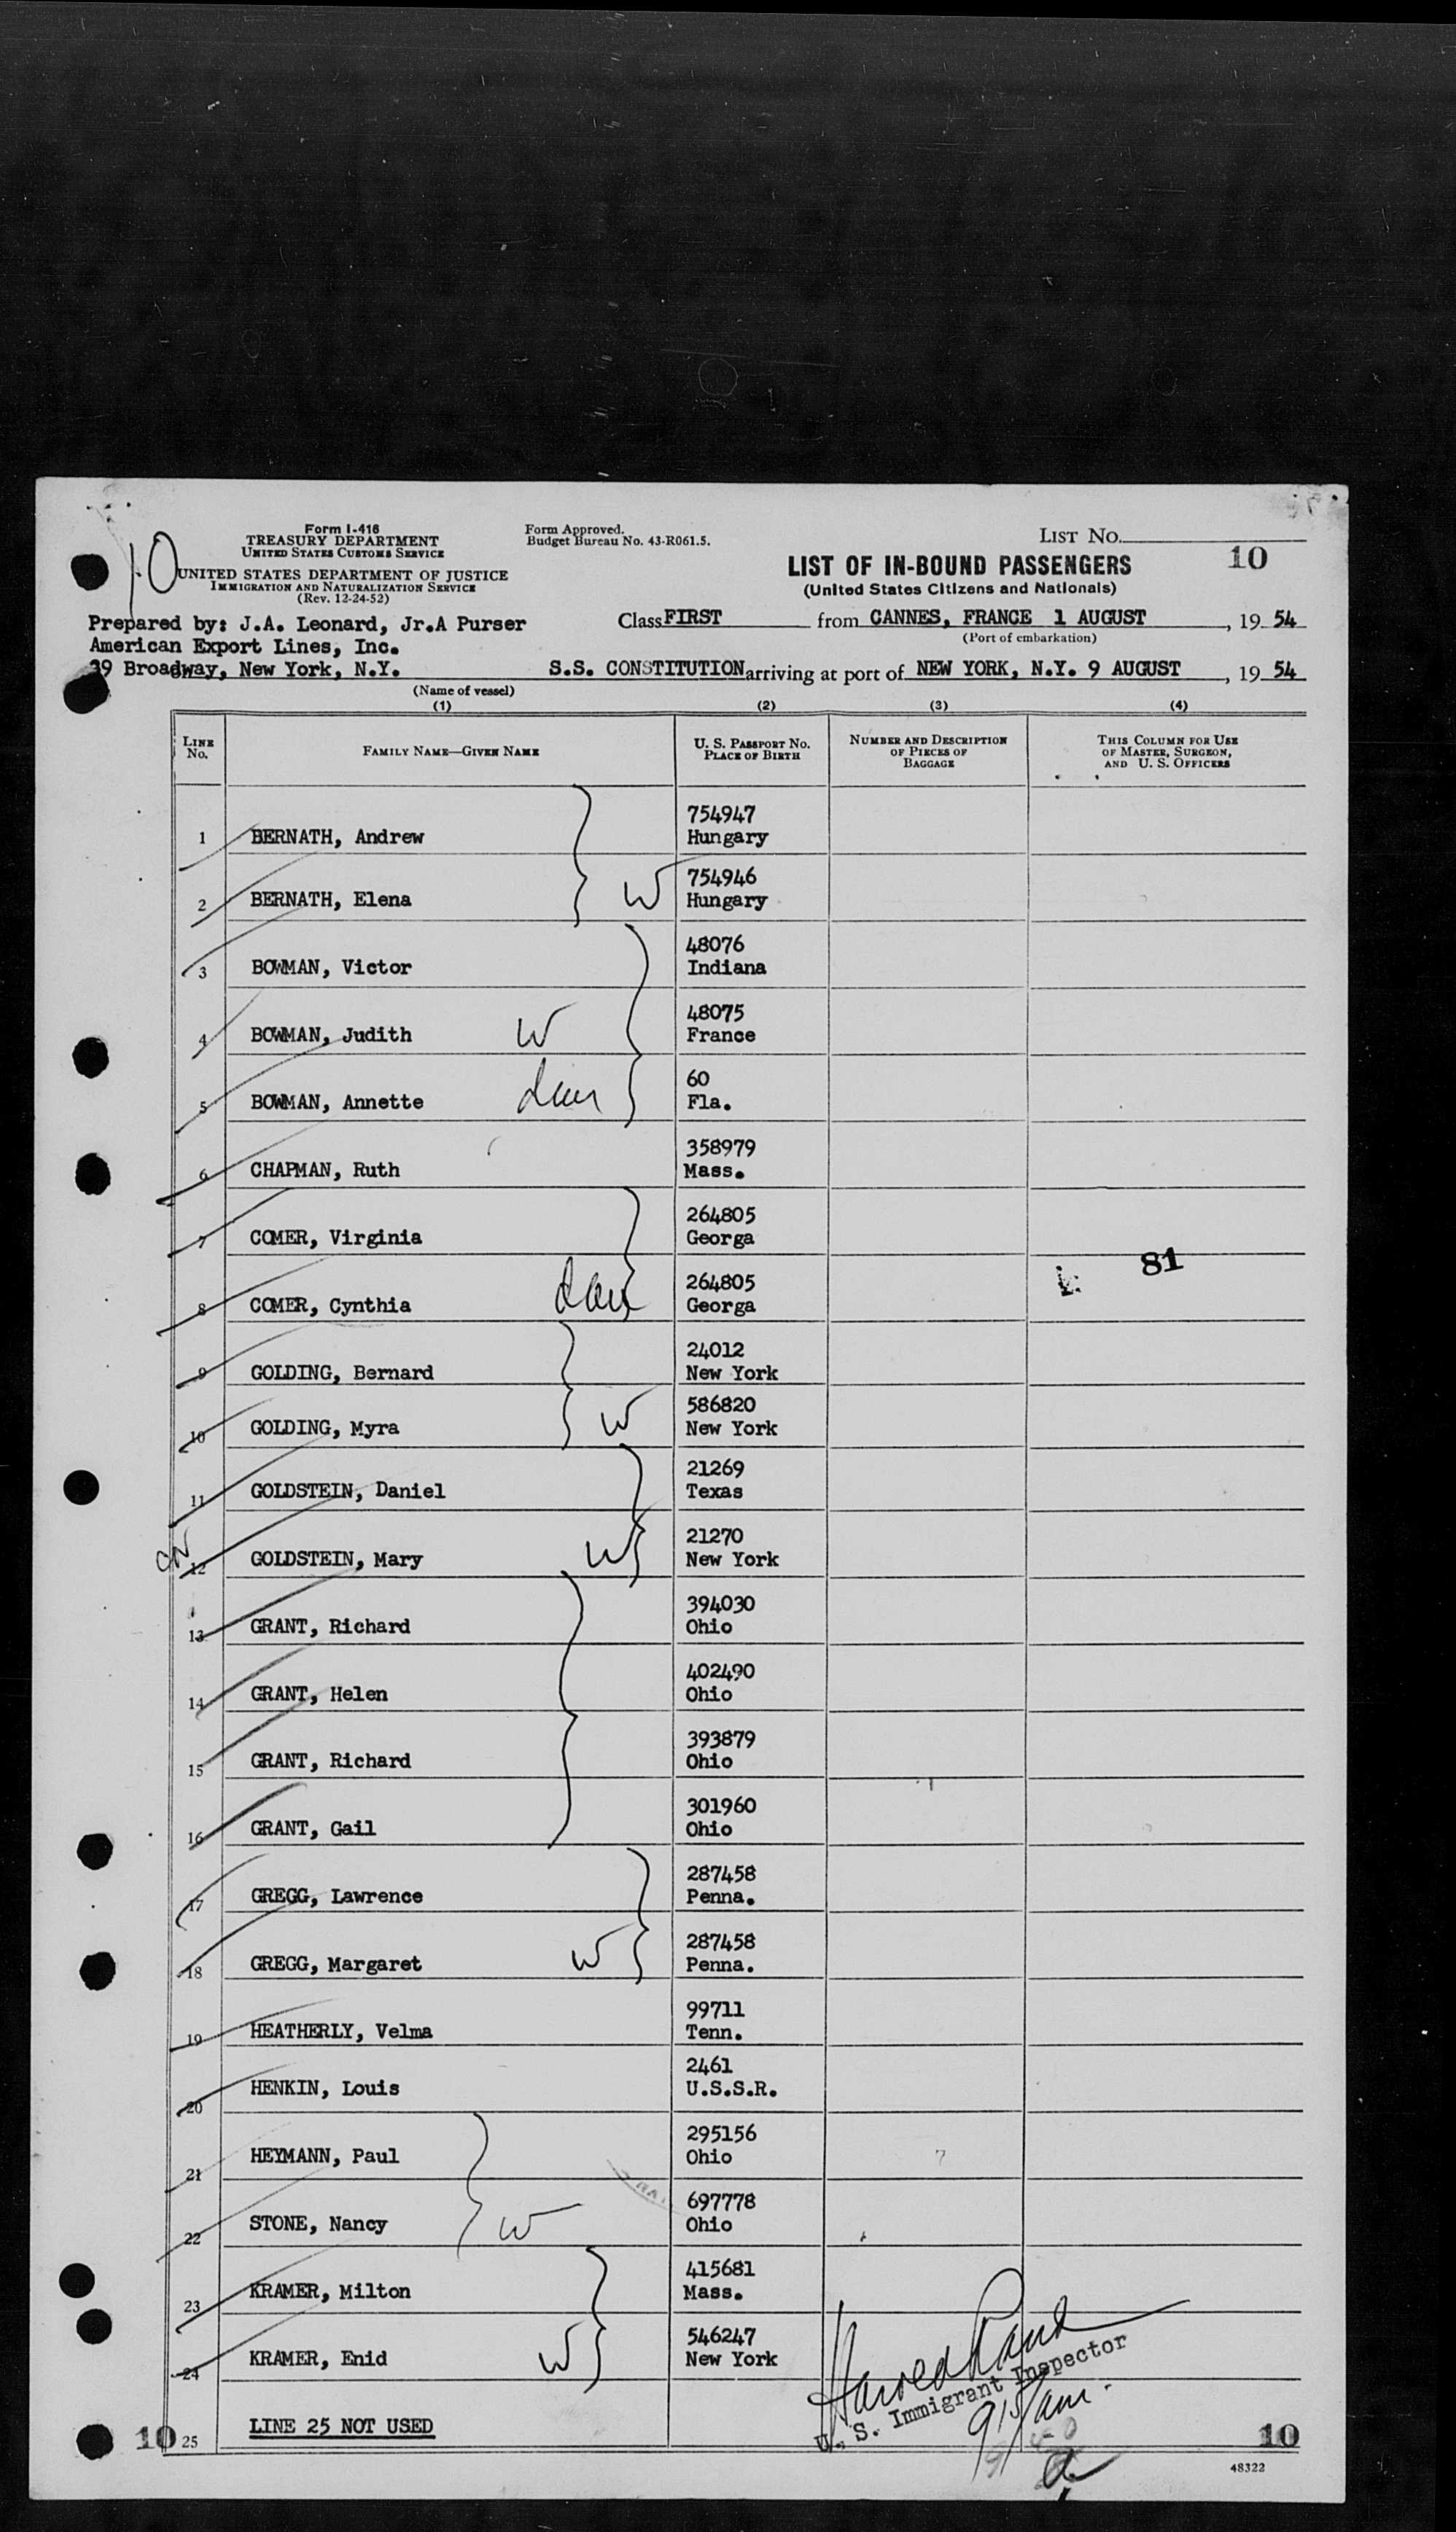 10
Form I-416
TREASURY DEPARTMENT
UNITED STATES CUSTOMS SERVICE
UNITED STATES DEPARTMENT OF JUSTICE
IMMIGRATION AND NATURALIZATION SERVICE
(Rev. 12-24-52)
Form Approved.
Budget Bureau No. 43-R061.5.
LIST NO.
10
LIST OF IN-BOUND PASSENGERS
(United States Citizens and Nationals)
Prepared by: J.A. Leonard, Jr.A Purser
American Export Lines, Inc.
39 Broadway, New York, N.Y.
Class FIRST from CANNES, FRANCE 1 AUGUST, 19 54
(Port of embarkation)
S.S. CONSTITUTION arriving at port of NEW YORK, N.Y. 9 AUGUST, 19 54
(Name of vessel)
(1) (2) (3) (4)
LINE NO.
FAMILY NAME—GIVEN NAME
U. S. PASSPORT NO.
PLACE OF BIRTH
NUMBER AND DESCRIPTION
OF PIECES OF
BAGGAGE
THIS COLUMN FOR USE
OF MASTER, SURGEON,
AND U. S. OFFICERS
754947
1 BERNATH, Andrew Hungary
754946
2 BERNATH, Elena W Hungary
48076
3 BOWMAN, Victor Indiana
48075
4 BOWMAN, Judith W France
60
5 BOWMAN, Annette Fla.
358979
6 CHAPMAN, Ruth Mass.
264805
7 COMER, Virginia Georga
81
264805
8 COMER, Cynthia Georga
24012
9 GOLDING, Bernard New York
586820
10 GOLDING, Myra W New York
21269
11 GOLDSTEIN, Daniel Texas
21270
12 GOLDSTEIN, Mary W New York
394030
13 GRANT, Richard Ohio
402490
14 GRANT, Helen Ohio
393879
15 GRANT, Richard Ohio
301960
16 GRANT, Gail Ohio
287458
17 GREGG, Lawrence Penna.
287458
18 GREGG, Margaret W Penna.
99711
19 HEATHERLY, Velma Tenn.
2461
20 HENKIN, Louis U.S.S.R.
295156
21 HEYMANN, Paul Ohio
697778
22 STONE, Nancy W Ohio
415681
23 KRAMER, Milton Mass.
546247
24 KRAMER, Enid W New York
Harold
U. S. Immigrant Inspector
915 am.
10 25 LINE 25 NOT USED 10
48322